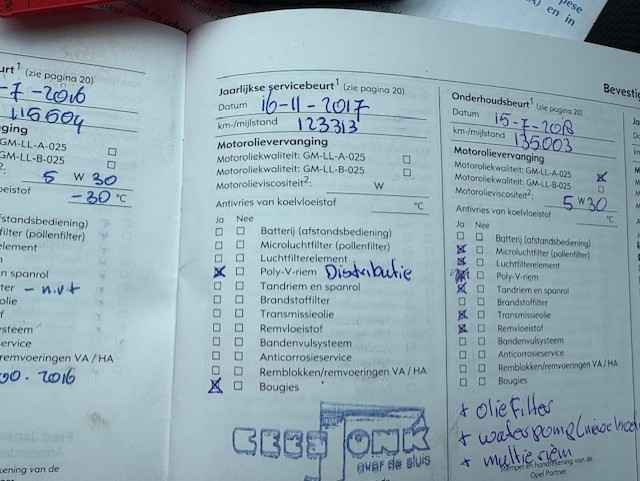 pese
) en in
eurt¹ (zie pagina 20)
-7-2016
115504
nging
GM-LL-A-025
GM-LL-B-025
5 W 30
oeistof -30 °C
fstandsbediening)
ilter (pollenfilter)
element
n spanrol
ter - n.v.t
olie
f
ysteem
ervice
remvoeringen VA / HA
2016
kening van de
Jaarlijkse servicebeurt¹ (zie pagina 20)
Datum 16-11-2017
km-/mijlstand 123313
Motorolievervanging
Motoroliekwaliteit: GM-LL-A-025
Motoroliekwaliteit: GM-LL-B-025
Motorolieviscositeit²: W
Antivries van koelvloeistof °C
Ja Nee
Batterij (afstandsbediening)
Microluchtfilter (pollenfilter)
Luchtfilterelement
Poly-V-riem Distributie
Tandriem en spanrol
Brandstoffilter
Transmissieolie
Remvloeistof
Bandenvulsysteem
Anticorrosieservice
Remblokken/remvoeringen VA / HA
Bougies
CEES JONK
over de sluis
Bevestig
Onderhoudsbeurt¹ (zie pagina 20)
Datum 15-7-2018
km-/mijlstand 135003
Motorolievervanging
Motoroliekwaliteit: GM-LL-A-025
Motoroliekwaliteit: GM-LL-B-025
Motorolieviscositeit²: 5 W 30
Antivries van koelvloeistof °C
Ja Nee
Batterij (afstandsbediening)
Microluchtfilter (pollenfilter)
Luchtfilterelement
Poly-V-riem
Tandriem en spanrol
Brandstoffilter
Transmissieolie
Remvloeistof
Bandenvulsysteem
Anticorrosieservice
Remblokken/remvoeringen VA / HA
Bougies
+ oliefilter
+ waterpomp
+ multie riem
Stempel en handtekening van de
Opel Partner